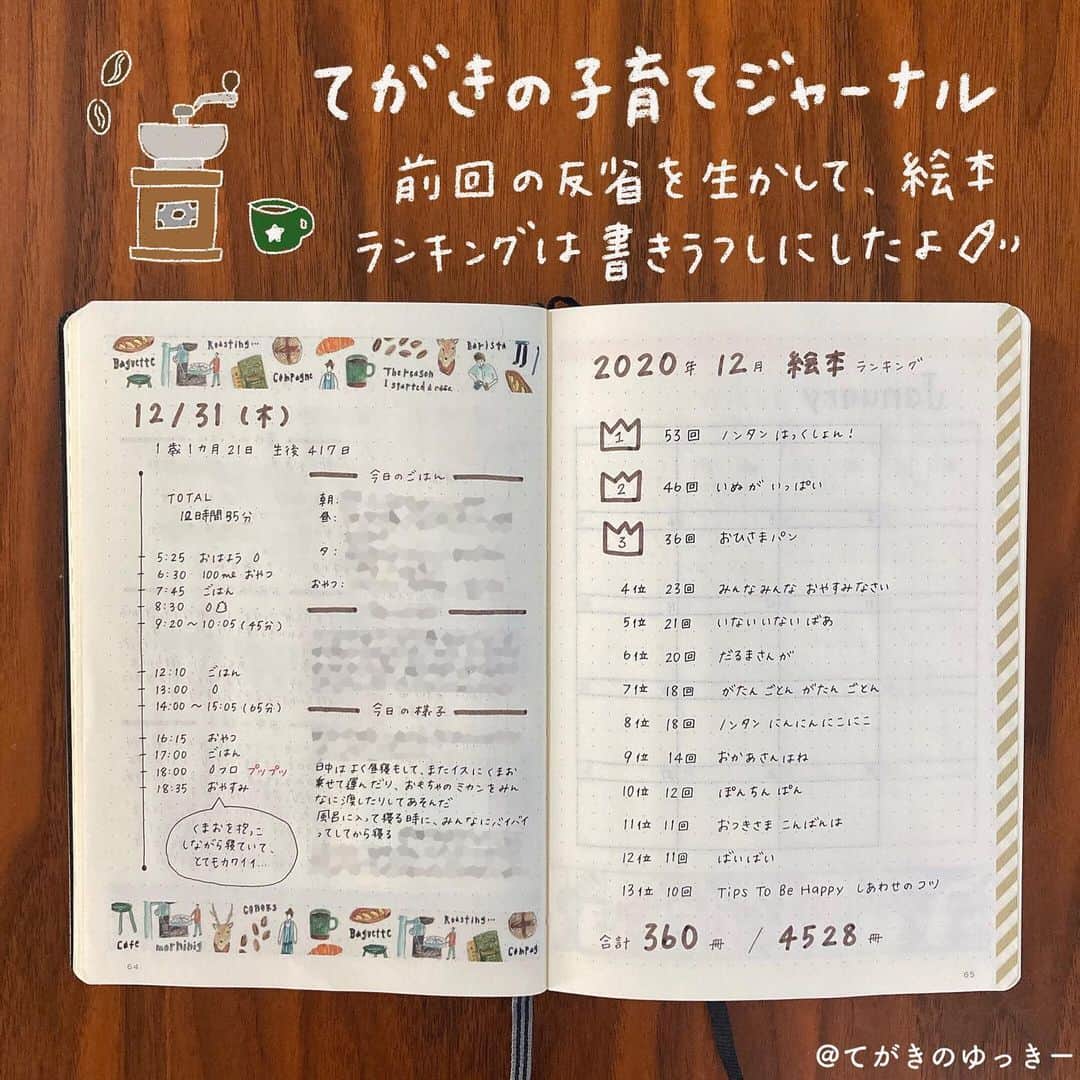 てがきの子育てジャーナル
前回の反省を生かして、絵本
ランキングは書きうつしにしたよ
Baguette
Roasting...
Campagne
The reason
I started a cafe.
Barista
12/31(木)
1歳1カ月21日 生後417日
TOTAL
12時間35分
5:25 おはよう 0
6:30 100ml おやつ
7:45 ごはん
8:30 0
9:20〜10:05(45分)
12:10 ごはん
13:00 0
14:00〜15:05(65分)
16:15 おやつ
17:00 ごはん
18:00 0フロ プップッ
18:35 おやすみ
くまおを抱っこ
しながら寝ていて、
とてもカワイイ...
今日のごはん
朝:
昼:
夕:
おやつ:
今日の様子
日中はよく昼寝もして、またイスにくまお
乗せて運んだり、おもちゃのミカンをみん
なに渡したりしてあそんだ
風呂に入って寝る時に、みんなにバイバイ
ってしてから寝る
Cafe
morning
Comers
Baguette
Roasting...
Campag
64
2020年 12月 絵本ランキング
1 53回 ノンタン はっくしょん!
2 46回 いぬが いっぱい
3 36回 おひさまパン
4位 23回 みんなみんな おやすみなさい
5位 21回 いないいない ばあ
6位 20回 だるまさんが
7位 18回 がたん ごとん がたん ごとん
8位 18回 ノンタン にんにんにこにこ
9位 14回 おかあさんはね
10位 12回 ぽんちん ぱん
11位 11回 おつきさま こんばんは
12位 11回 ばいばい
13位 10回 Tips To Be Happy しあわせのコツ
合計 360冊 / 4528冊
65
@てがきのゆっきー